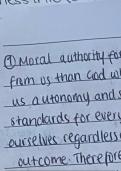 ① Moral authority fa
from us than God wi
us autonomy and s
standards for every
ourselves regardless
outcome. Therefore